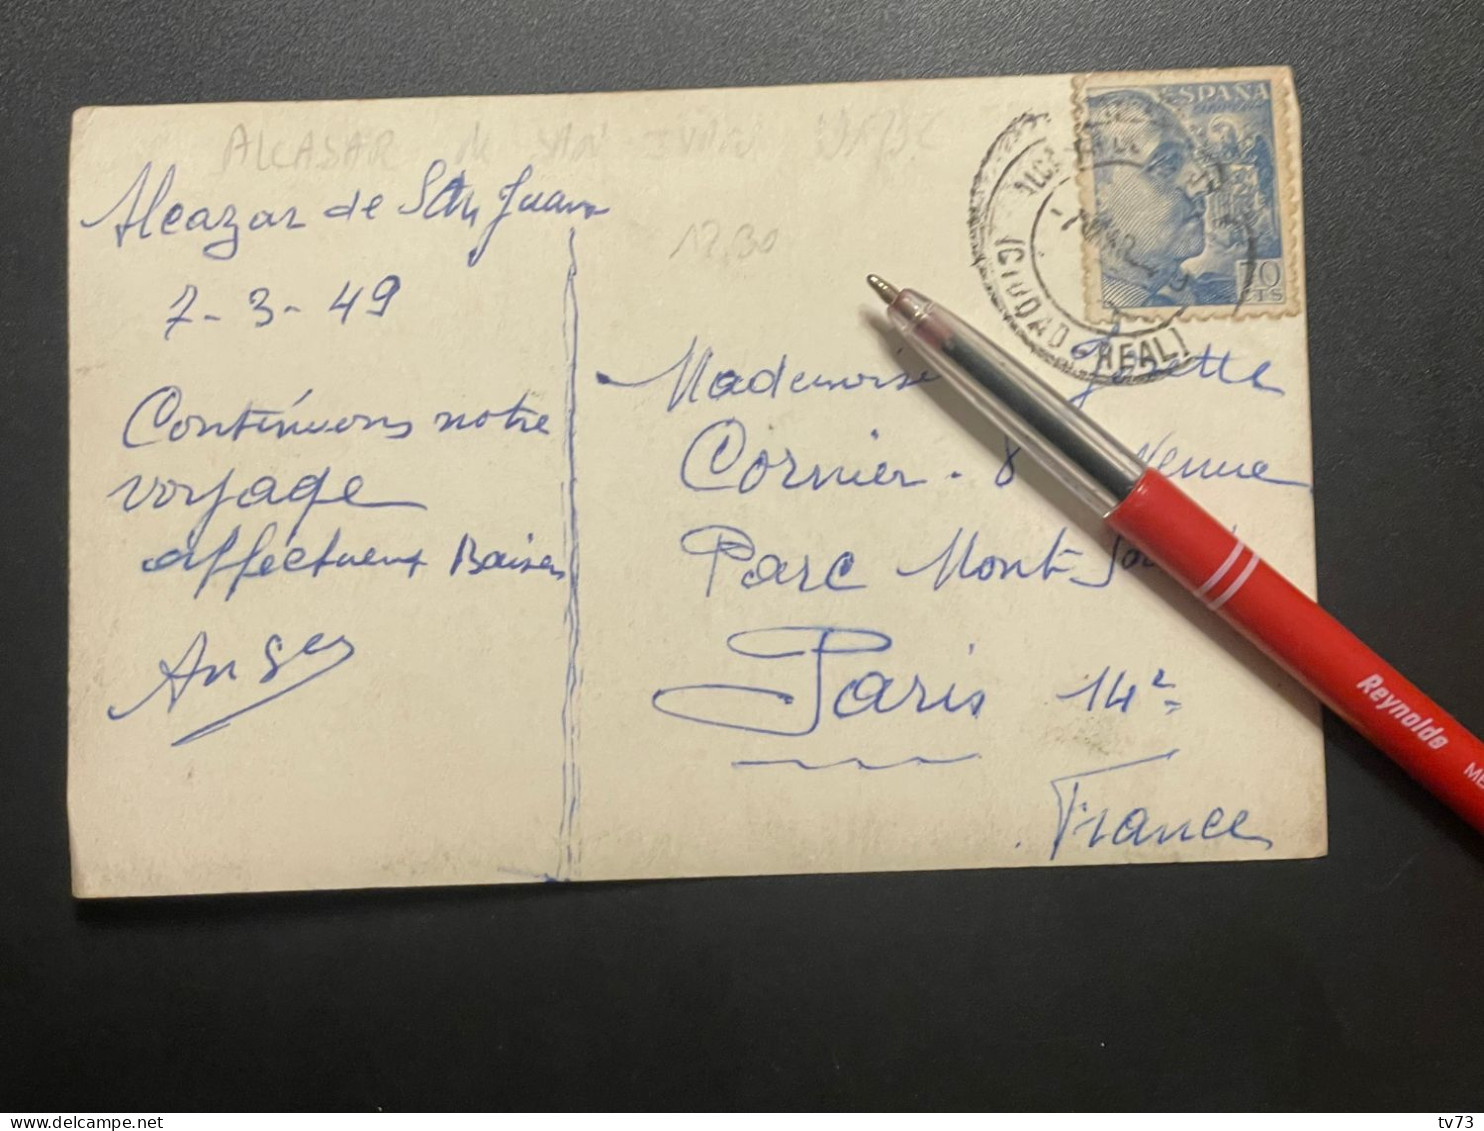 ALCASAR de SAN JUAN
Alcazar de San Juan
7-3-49
Continuons notre
voyage
affectueux Baisers
12,30
ESPAÑA
70
CTS
(CIUDAD REAL)
Mademoise Josette
Cornier - 8 venue
Parc Mont-Sou
Paris 14e
France
Reynolds
tv73